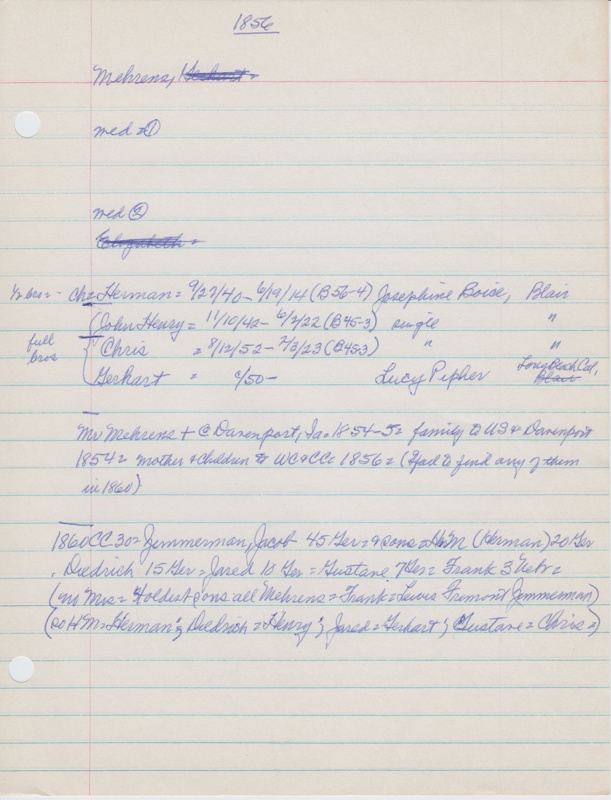 1856
Mehrens,
med = ①
med ②
Elizabeth =
½ bro = - Ch = Herman = 9/27/40 - 6/19/14 (B56-4) Josephine Boice, Blair
John Henry = 11/10/42 - 6/2/22 (B45-3) single "
full bros
Chris = 8/12/52 - 7/3/23 (B45-3) " "
Gerhart = c/50 - Lucy Pipher Long Beach Cal, Blair
Mr Mehrens + @ Davenport, Ia. 1854-5 = family to US & Davenport
1854 = mother & children to WC&CC = 1856 = (Had to find any of them
in 1860)
1860 CC 30 = Zimmerman, Jacob 45 Ger = 9 sons = HM (Herman) 20 Ger
, Diedrich 15 Ger = Jared 10 Ger = Gustane 7 Ger = Frank 3 Nebr =
(no Mrs = 4 oldest sons all Mehrens = Frank = Lewis Fremont Zimmerman)
(so HM = Herman; Diedrich = Henry; Jared = Gerhart; Gustane = Chris =)